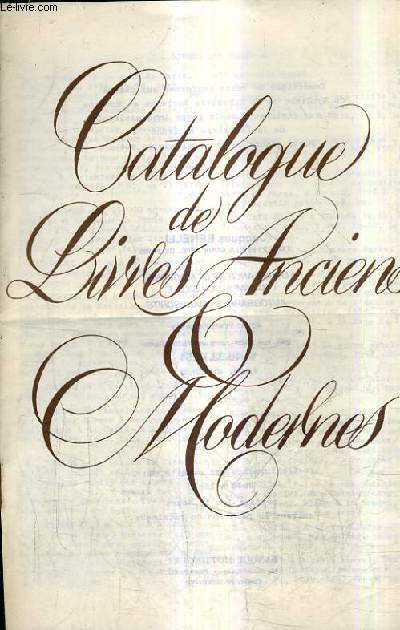 Le-livre.com
Catalogue
de
Livres Anciens
&
Modernes